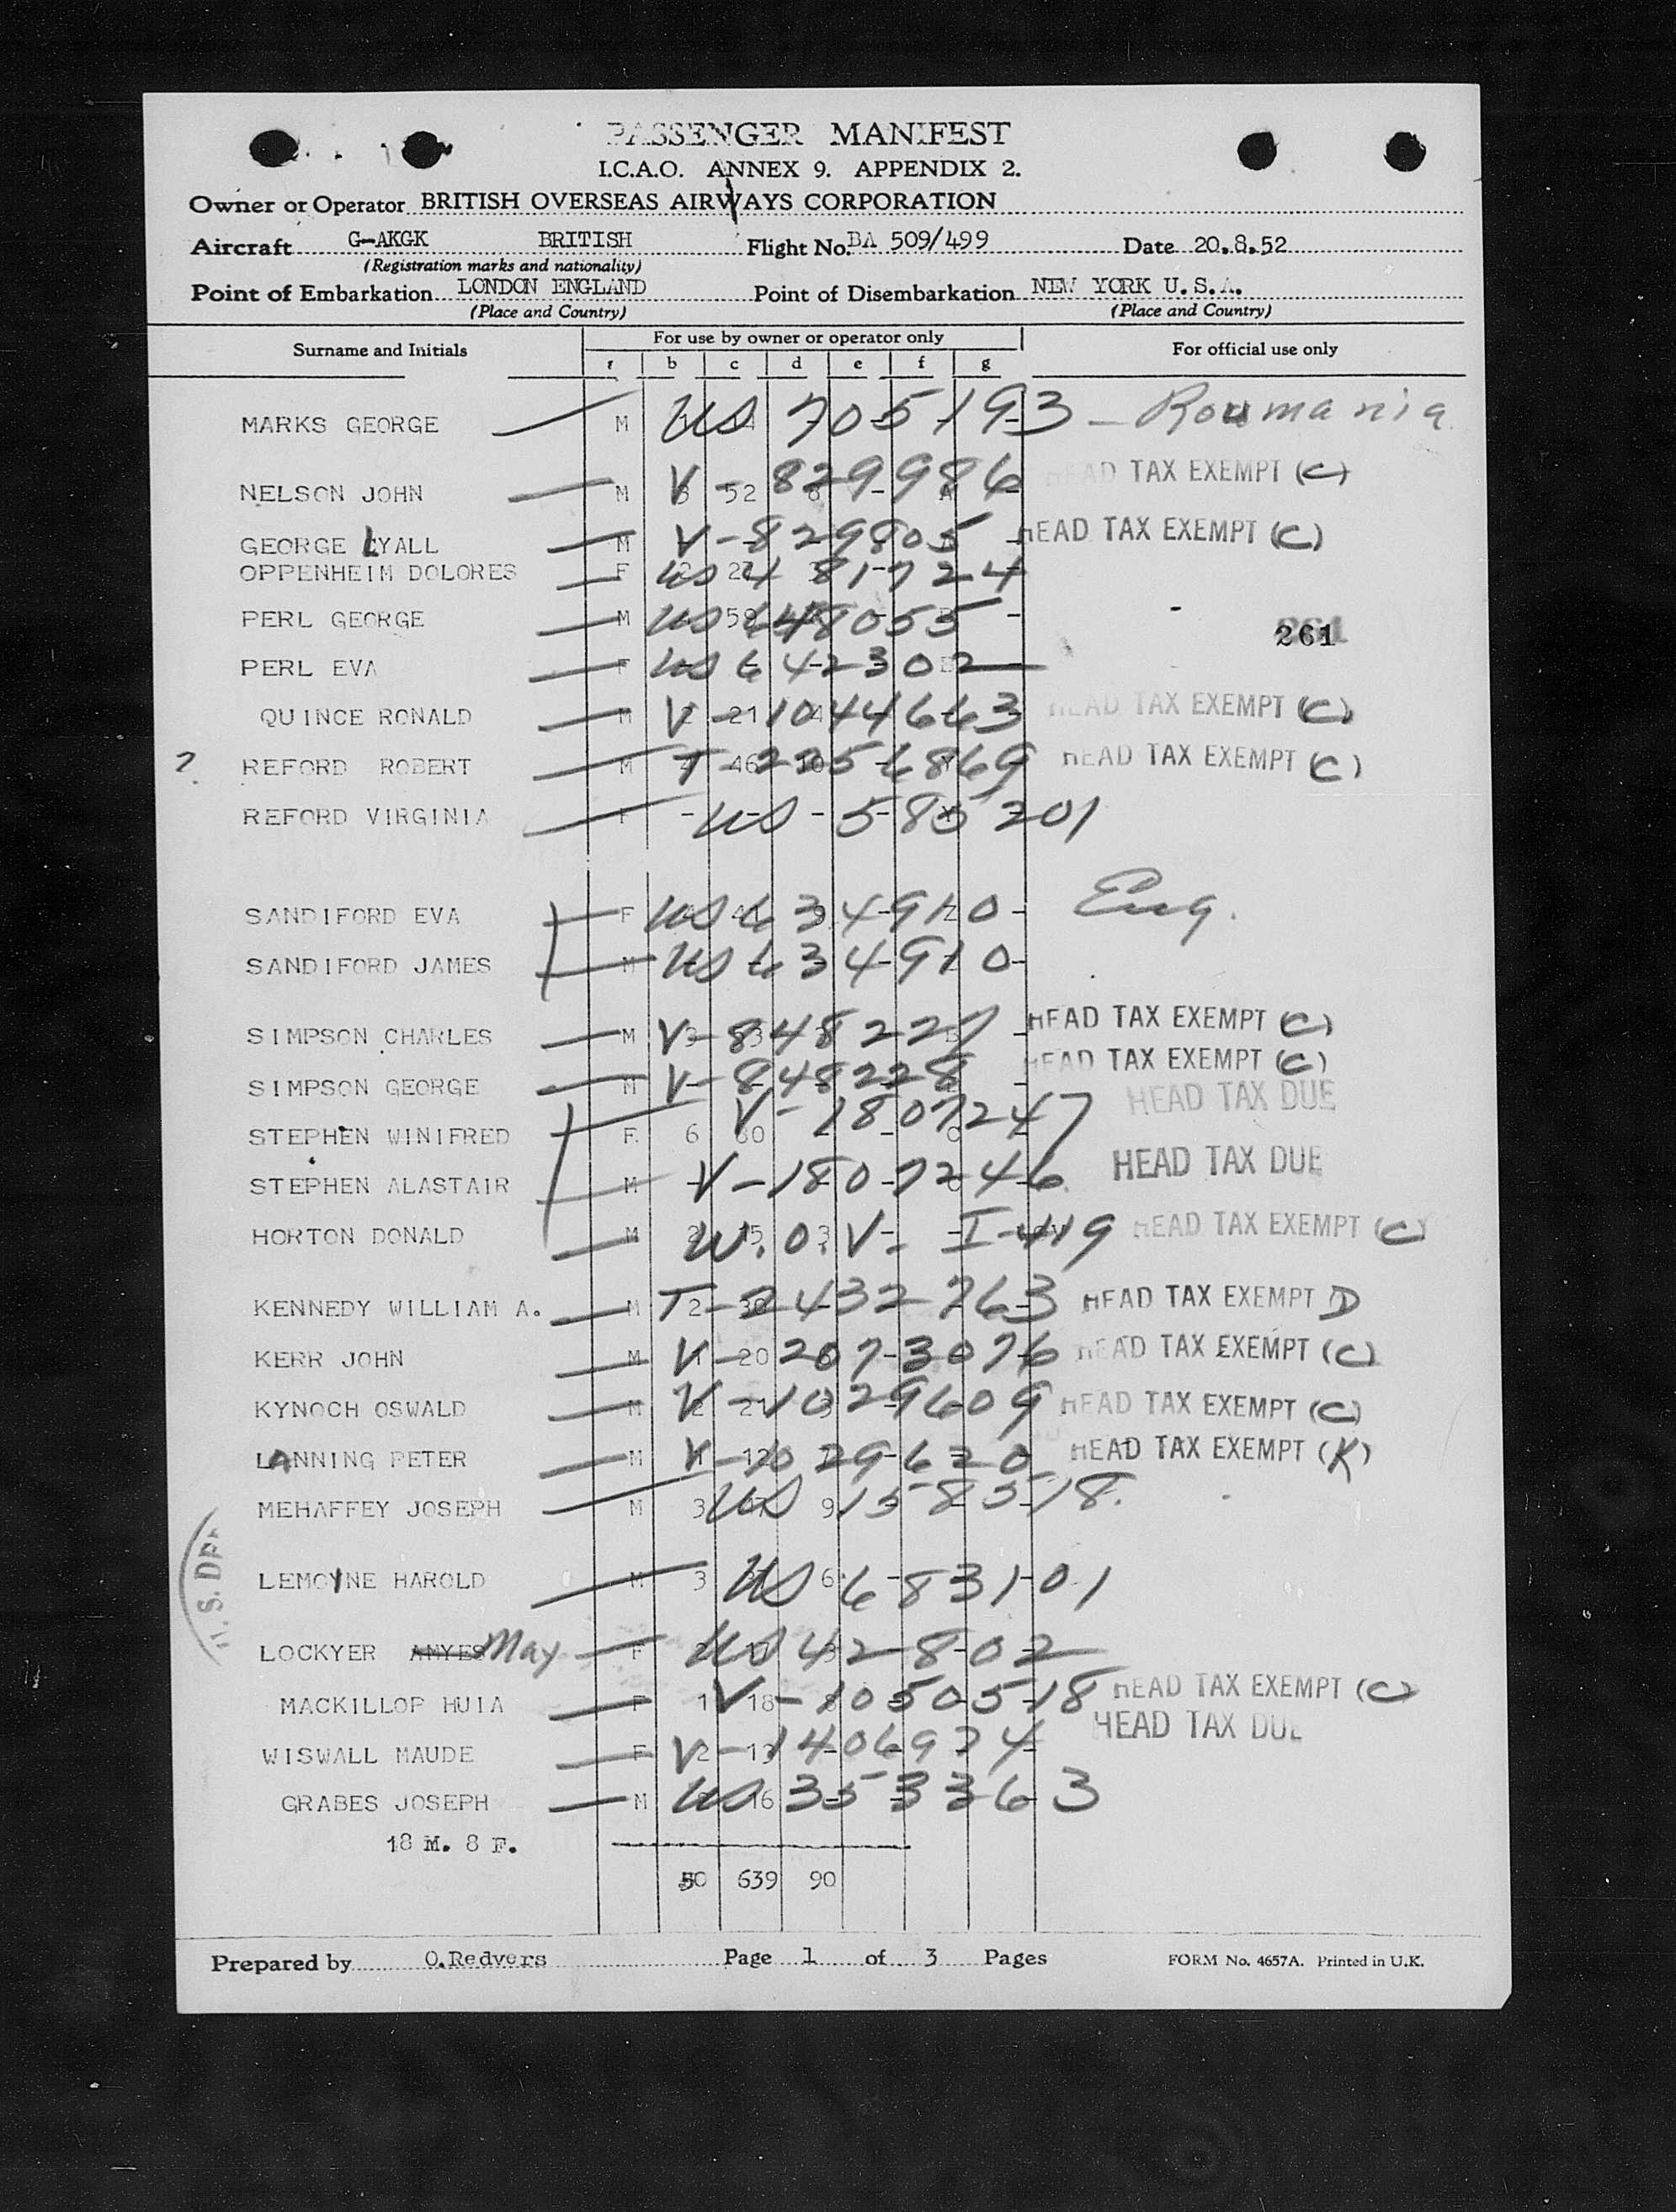 PASSENGER MANIFEST
I.C.A.O. ANNEX 9. APPENDIX 2.
Owner or Operator BRITISH OVERSEAS AIRWAYS CORPORATION
Aircraft G-AKGK BRITISH Flight No. BA 509/499 Date 20.8.52
(Registration marks and nationality)
Point of Embarkation LONDON ENGLAND Point of Disembarkation NEW YORK U.S.A.
(Place and Country) (Place and Country)
Surname and Initials For use by owner or operator only For official use only
b c d e f g
MARKS GEORGE M US 705193 - Roumania
NELSON JOHN M V-829986 HEAD TAX EXEMPT (C)
GEORGE LYALL M V-829805 HEAD TAX EXEMPT (C)
OPPENHEIM DOLORES F US 481724
PERL GEORGE M US 648055
261
PERL EVA F US 642302
QUINCE RONALD M V-1044663 HEAD TAX EXEMPT (C)
? REFORD ROBERT M T-2256869 HEAD TAX EXEMPT (C)
REFORD VIRGINIA F US 585201
SANDIFORD EVA F US 634910 Eng.
SANDIFORD JAMES M US 634910
SIMPSON CHARLES M V-848227 HEAD TAX EXEMPT (C)
SIMPSON GEORGE M V-848228 HEAD TAX EXEMPT (C)
STEPHEN WINIFRED F. 6 V-1807247 HEAD TAX DUE
STEPHEN ALASTAIR M V-1807246 HEAD TAX DUE
HORTON DONALD M W.O.V- I-419 HEAD TAX EXEMPT (C)
KENNEDY WILLIAM A. M 2 T-2432763 HEAD TAX EXEMPT D
KERR JOHN M V-2073076 HEAD TAX EXEMPT (C)
KYNOCH OSWALD M V-1029609 HEAD TAX EXEMPT (C)
LANNING PETER M V-1029620 HEAD TAX EXEMPT (K)
MEHAFFEY JOSEPH M 3 9 US 158518.
LEMOYNE HAROLD M 3 6 US 683101
LOCKYER AMYES May F US 42802
MACKILLOP HUIA F 1 18 V-1050518 HEAD TAX EXEMPT (C)
WISWALL MAUDE F 2 V-1406974 HEAD TAX DUE
GRABES JOSEPH M 16 US 353363
18 M. 8 F.
50 639 90
Prepared by O.Redvers Page 1 of 3 Pages FORM No. 4657A. Printed in U.K.